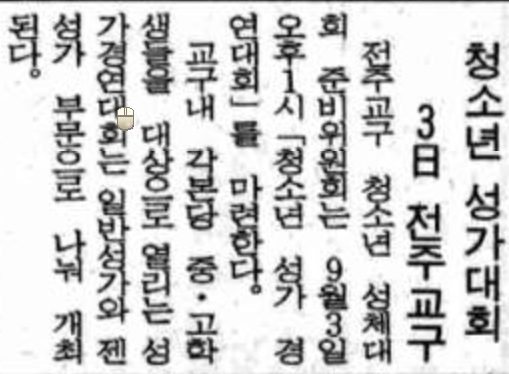 청소년 성가대회
3日 전주교구
전주교구 청소년 성체대
회 준비위원회는 9월3일
오후1시 「청소년 성가 경
연대회」를 마련한다.
교구내 각본당 중·고학
생들을 대상으로 열리는 성
가경연대회는 일반성가와 젠
성가 부문으로 나눠 개최
된다.